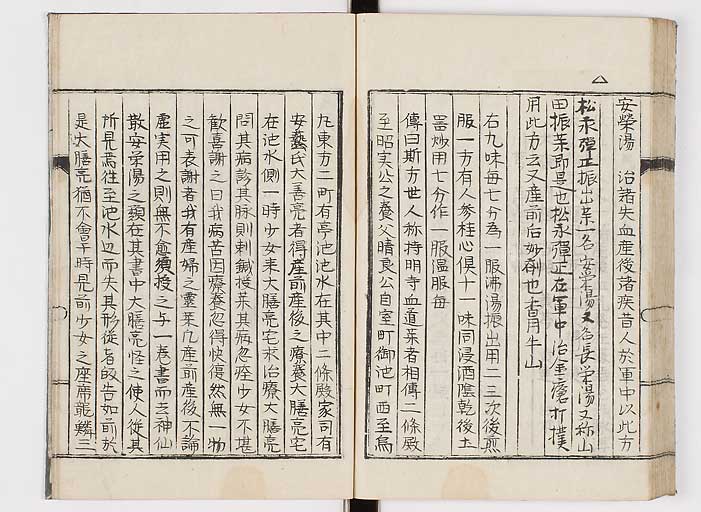 △
安榮湯 治諸失血産後諸疾昔人於軍中以此方
松永彈正振出薬一名安栄湯又名長栄湯又称山
田振薬即是也松永彈正在軍中治金瘡打撲
用此方云又産前后妙劑也 香月牛山
右九味每七分為一服沸湯振出用二三次後煎
服一方有人參桂心俱十一味同浸酒陰乾後土
器炒用七分作一服温服每
傳曰斯方世人称持明寺血道薬者相傳二條殿
至昭実公之養父晴良公自室町御池町西至烏
丸東方二町有亭池池水在其中二條殿家司有
安藝氏大善亮者得産前産後之療養大膳亮宅
在池水側一時少女来大膳亮宅求治療大膳亮
問其病診其脉則刺鍼授薬其病忽痊少女不堪
歡喜謝之曰我病苦因療養忽得快復然無一物
之可表謝者我有産婦之靈薬凡産前産後不論
虚実用之則無不愈須授之与一巻書而去神仙
散安栄湯之類在其書中大膳亮怪之使人從其
所見焉往至池水辺而失其形從者皈告如前於
是大膳亮猶不舍早時見前少女之座席龍鱗三